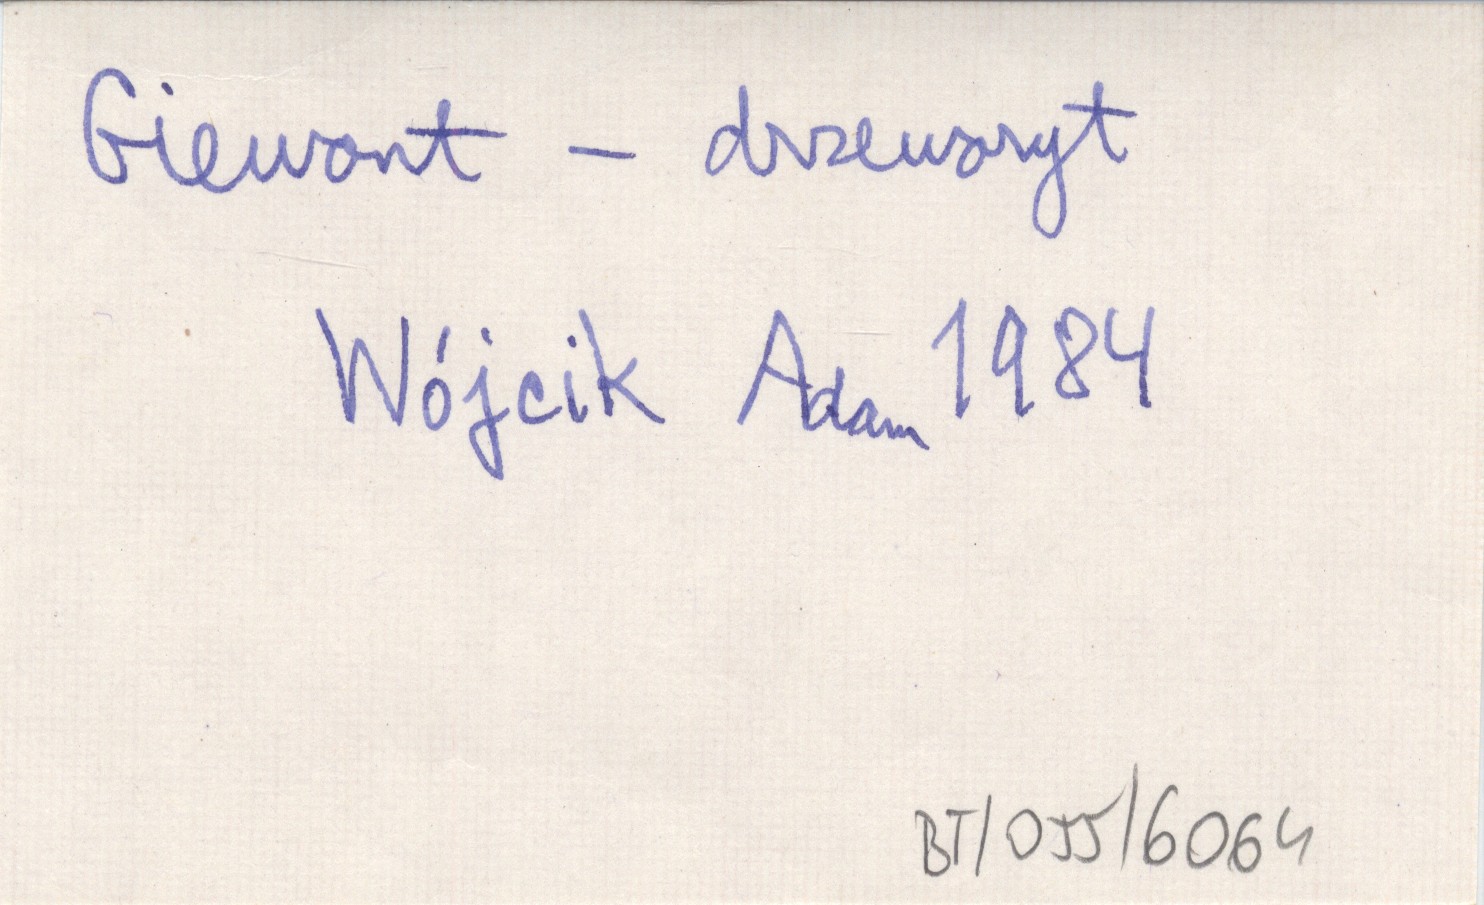 Giewont – drzeworyt
Wójcik Adam 1984
BT/055/6064